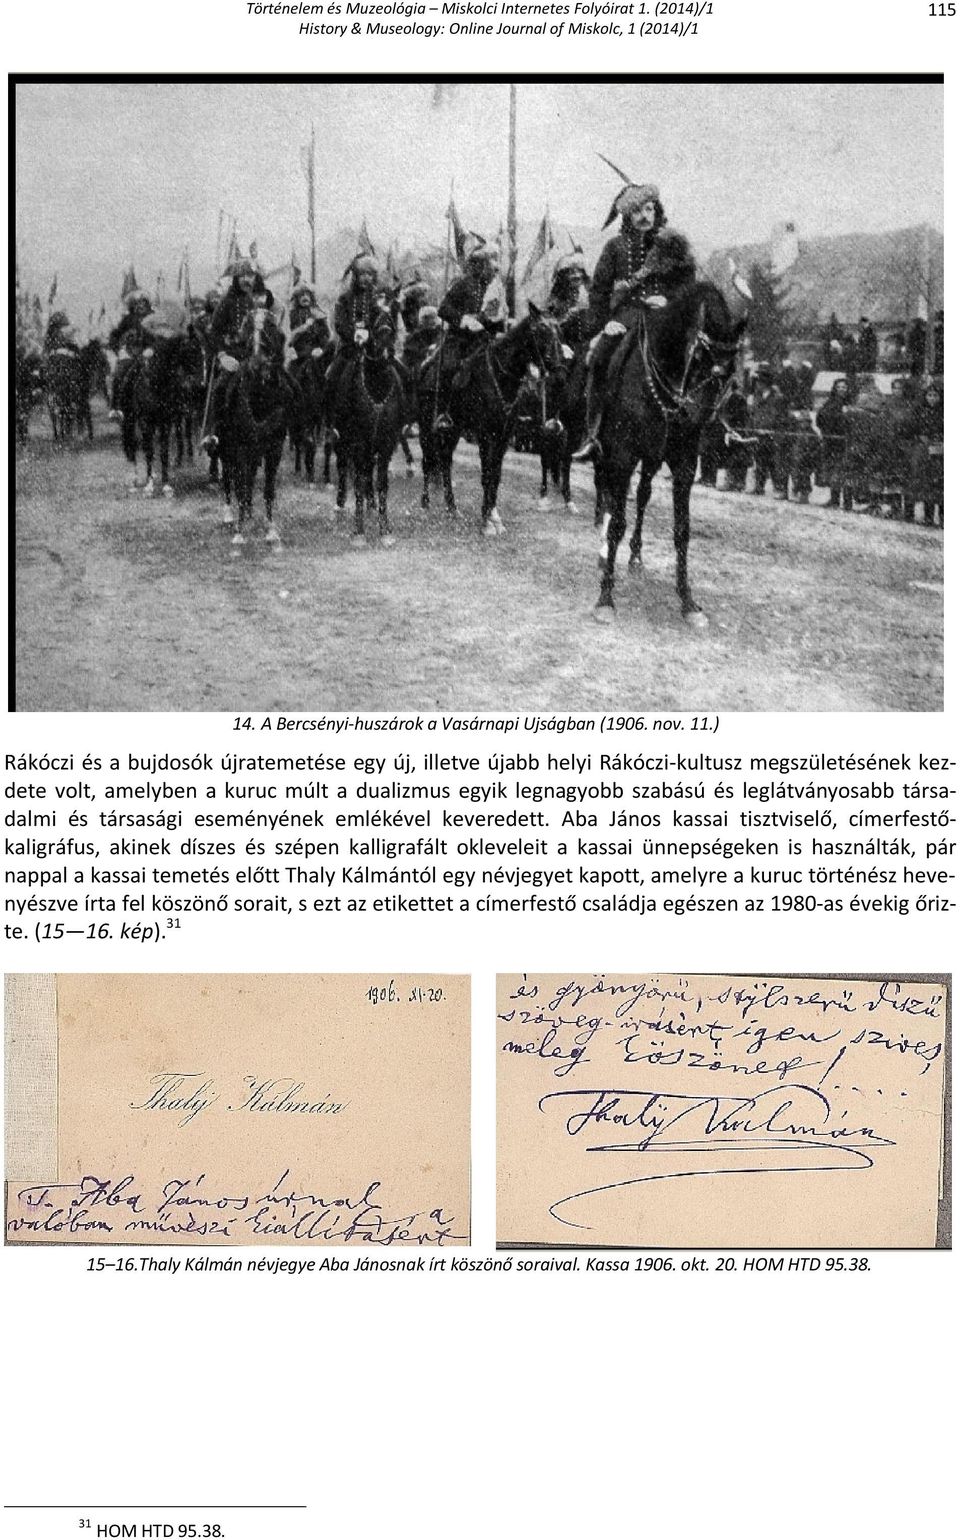 Történelem és Muzeológia – Miskolci Internetes Folyóirat 1. (2014)/1
History & Museology: Online Journal of Miskolc, 1 (2014)/1
115
14. A Bercsényi-huszárok a Vasárnapi Ujságban (1906. nov. 11.)
Rákóczi és a bujdosók újratemetése egy új, illetve újabb helyi Rákóczi-kultusz megszületésének kez-
dete volt, amelyben a kuruc múlt a dualizmus egyik legnagyobb szabású és leglátványosabb társa-
dalmi és társasági eseményének emlékével keveredett. Aba János kassai tisztviselő, címerfestő-
kaligráfus, akinek díszes és szépen kalligrafált okleveleit a kassai ünnepségeken is használták, pár
nappal a kassai temetés előtt Thaly Kálmántól egy névjegyet kapott, amelyre a kuruc történész heve-
nyészve írta fel köszönő sorait, s ezt az etikettet a címerfestő családja egészen az 1980-as évekig őriz-
te. (15 —16. kép).31
1906. XI-20.
Thaly Kálmán
T. Aba János úrnak
a
valóban művészi kiállításért
és gyönyörű, stylszerű díszű
szöveg-irásért igen szives,
meleg köszönet! ....
Thaly Kálmán
15–16.Thaly Kálmán névjegye Aba Jánosnak írt köszönő soraival. Kassa 1906. okt. 20. HOM HTD 95.38.
31 HOM HTD 95.38.